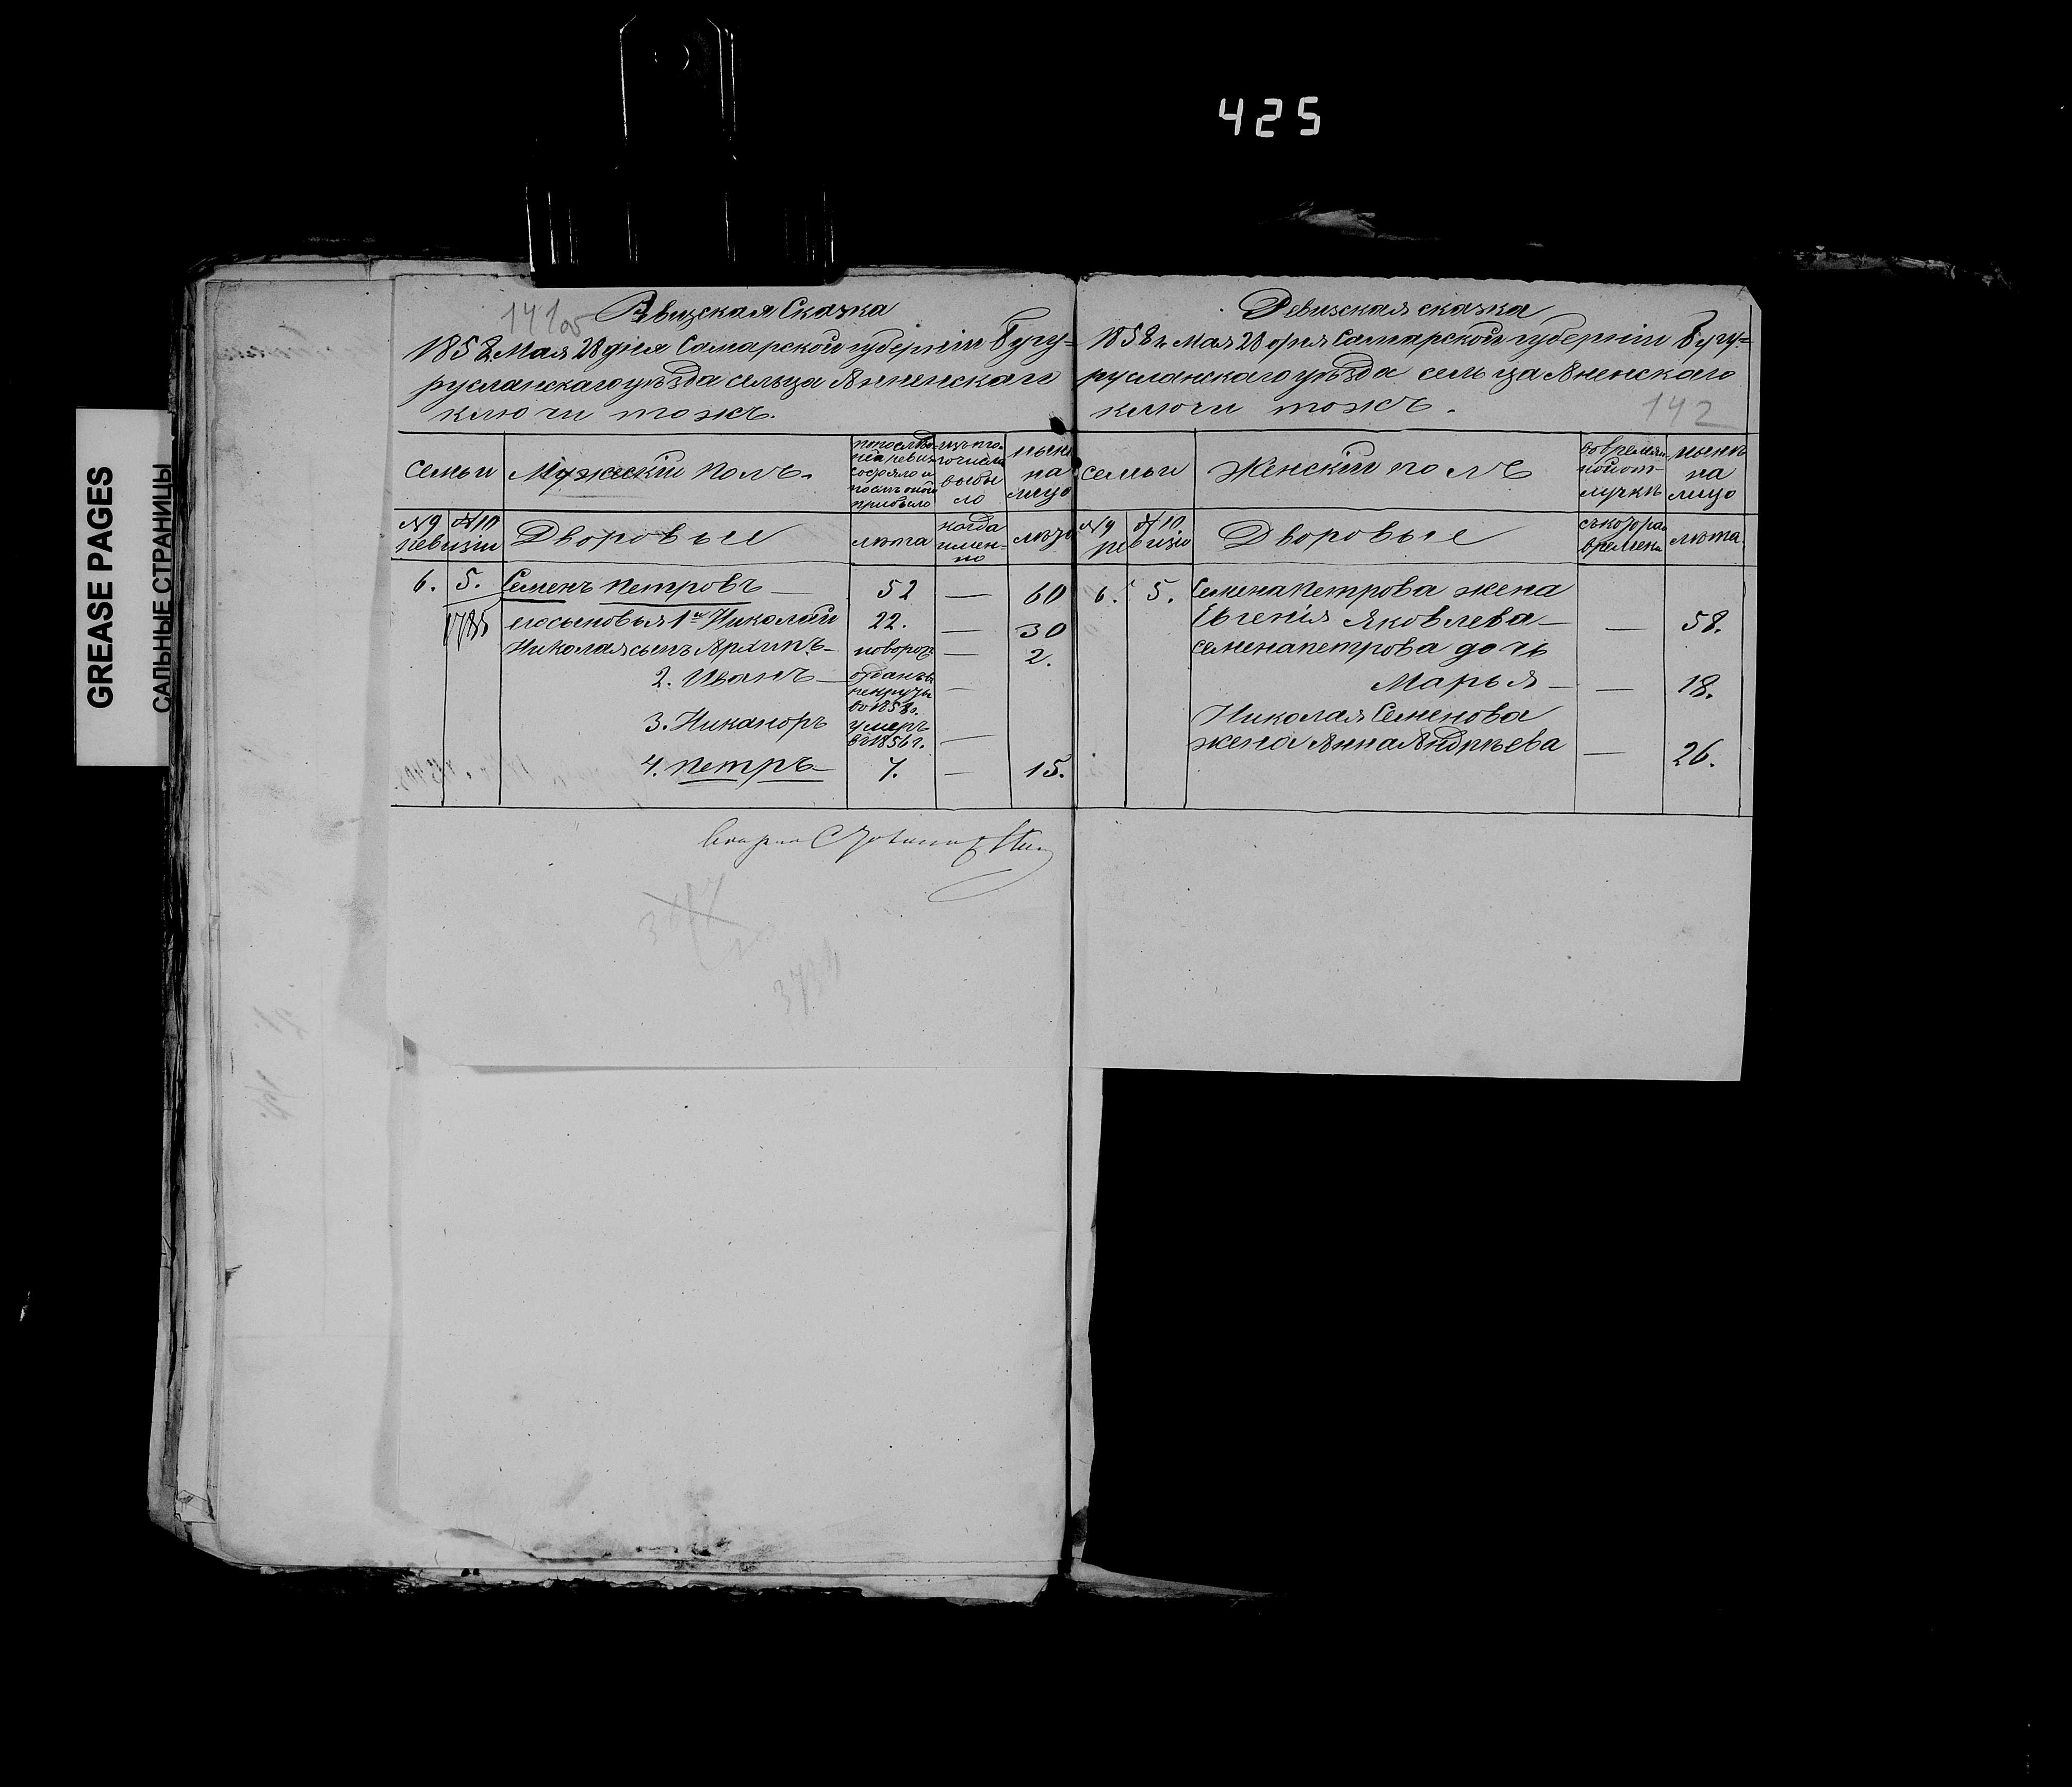 425
GREASE PAGES
САЛЬНЫЕ СТРАНИЦЫ
141об
Ревизская Сказка
1858г. Мая 28 дня Самарской губернiи Бугу=
русланскаго уѣзда сельца Анненскаго
ключи тожъ.
семьи
Мужескiй полъ.
по послѣд-
ней ревиз.
состояло и
послѣ оной
прибыло
изъ то-
го числа
выбы
ло
нынѣ
на
лицо
№ 9 № 10
ревизiи
Дворовые
лѣта
когда
имен-
но
лѣта
6. 5. Семенъ Петровъ — 52 — 60
его сыновья 1й Николай 22. — 30
Николая сынъ Архипъ — новорож — 2.
2. Иванъ — отданъ въ
рекруты
во 1858г. —
3. Никаноръ умеръ
въ 1856 г. —
4. Петръ — 7. — 15.
Ревизская сказка
1858г. Мая 28 дня Самарской губернiи Бугу=
русланскаго уѣзда сельца Аненскаго
ключи тожъ.
142
семьи
Женскiй полъ
во времян-
ной от-
лучкѣ
нынѣ
на
лицо
№ 9 № 10
ревизiи
Дворовые
съ котора.
времени
лѣта
6. 5. Семена Петрова жена
Евгенiя Яковлева — — 58.
Семена Петрова дочь
Марья — — 18.
Николая Семенова
жена Анна Андрѣева — 26.
373